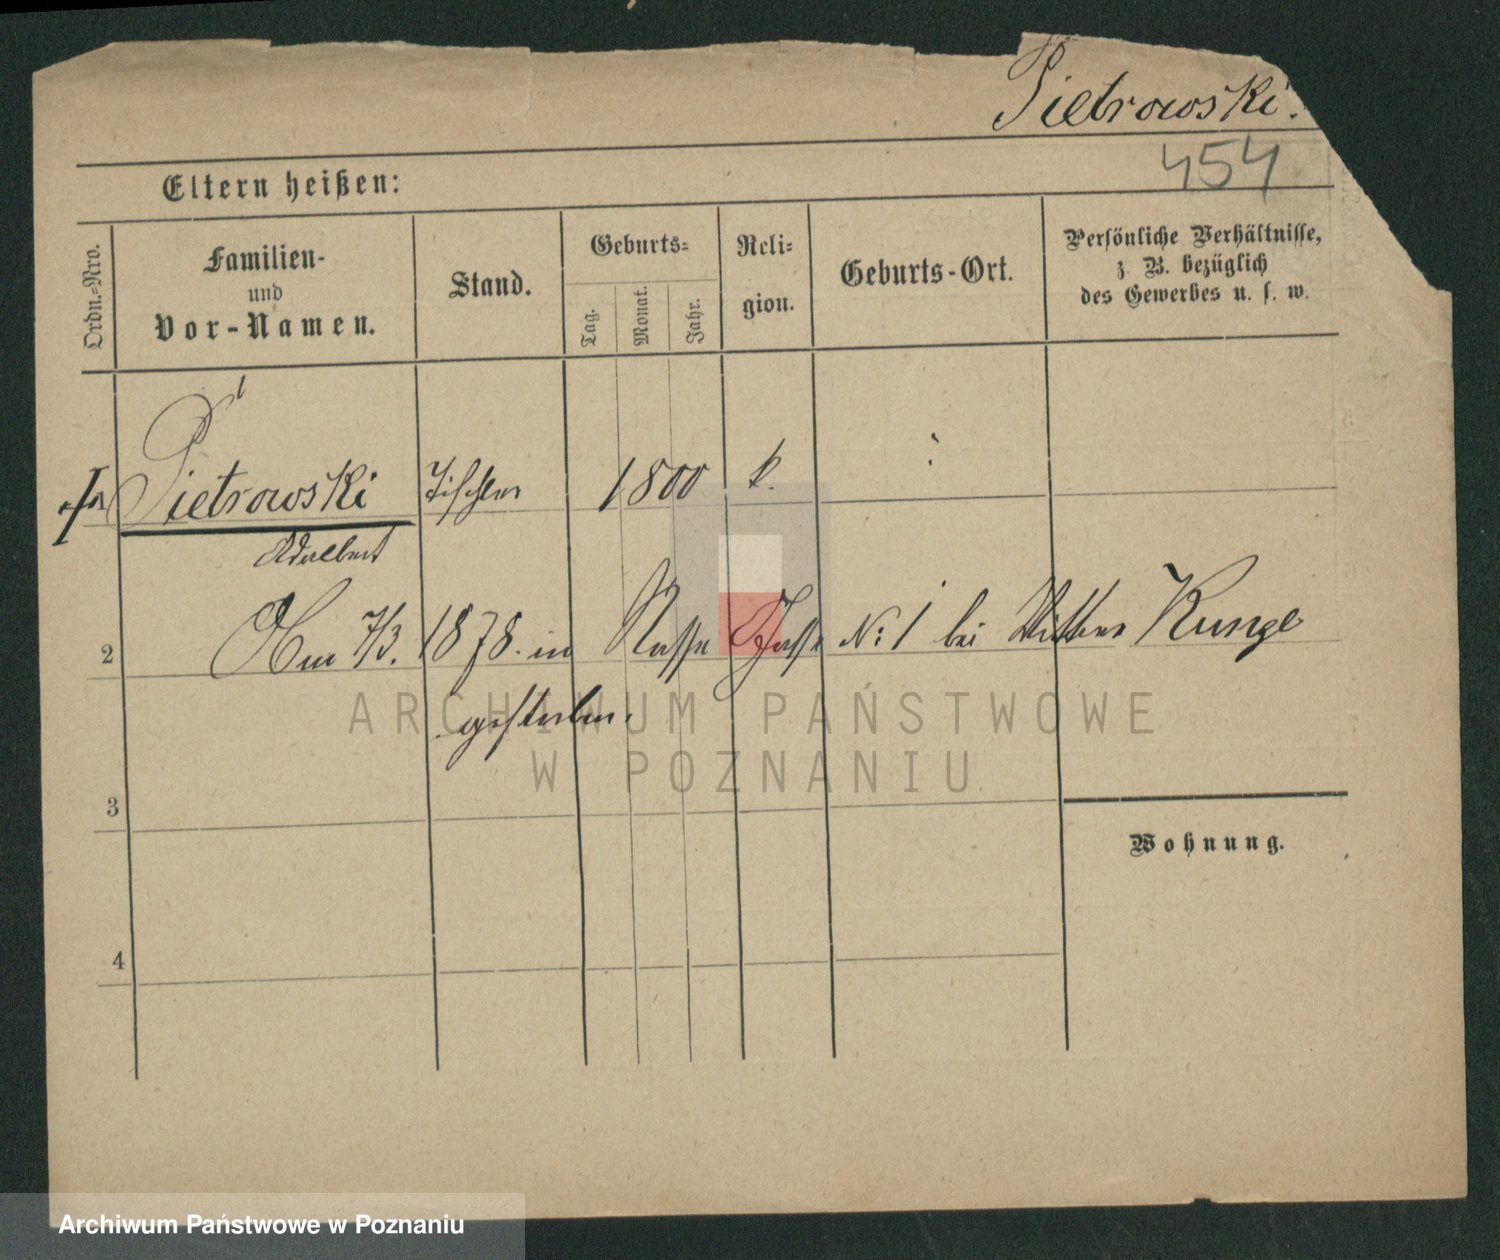 Pietrowski.
454
Eltern heißen:
Ordn.-Nro.
Familien-
und
Vor-Namen.
Stand.
Geburts-
Tag.
Monat.
Jahr.
Reli-
gion.
Geburts-Ort.
Persönliche Verhältnisse,
z. B. bezüglich
des Gewerbes u. s. w.
Pietrowski Tischler 1800 k.
Adalbert
2 Am 7/3. 1878. in Nasse Gasse No 1 bei Wittwe Kunze
gestorben.
3
Wohnung.
4
ARCHIWUM PAŃSTWOWE
W POZNANIU
Archiwum Państwowe w Poznaniu